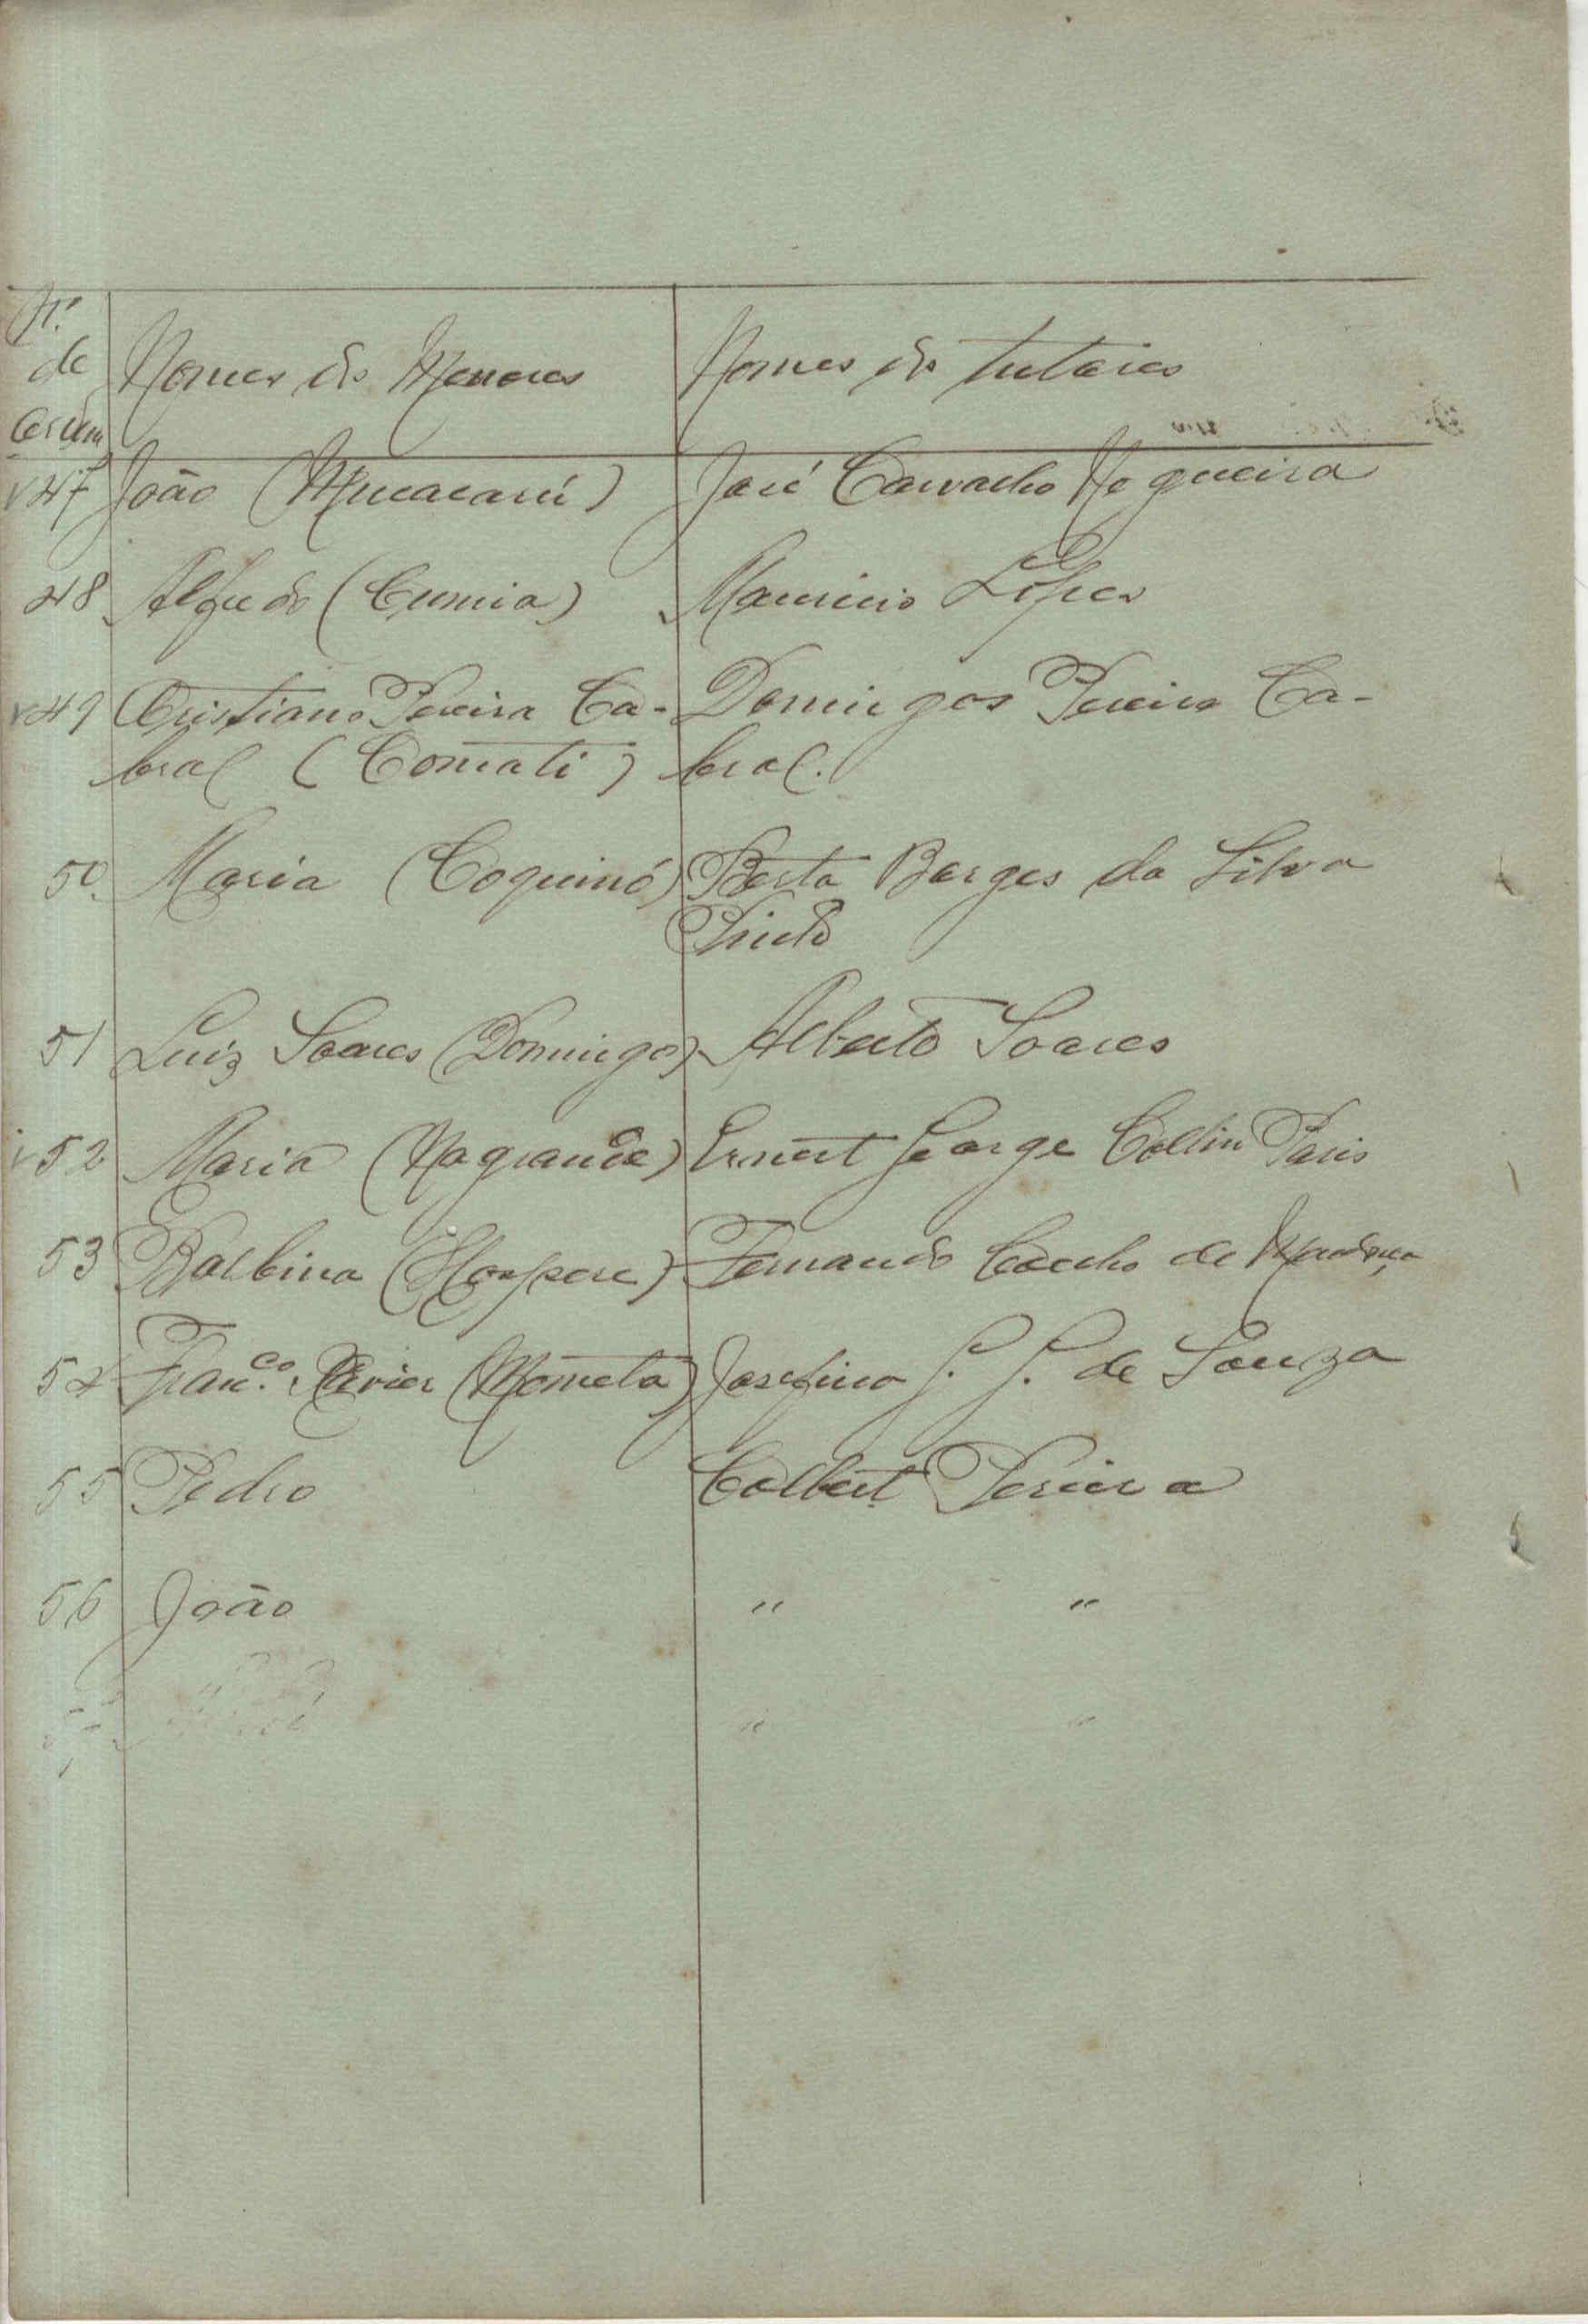 Nº
de
Ordem
Nomes dos Menores Nomes dos tutores
v 47 João (Mucacarú) José Carvalho Nogueira
48 Alfredo (Cumia) Mauricio Lopes
v 49 Cristiano Pereira Ca- Domingos Pereira Ca-
bral (Comati) bral.
50 Maria (Coquinó) Berta Borges da Silva
Pinto
51 Luiz Soares (Domingo) Alberto Soares
v 52 Maria (Nagrande) Ernest George Collin Paris
53 Balbina Fernando Coelho de Mendonça
54 Fran.co Xavier (Mometa) Josefino de Souza
55 Pedro Colbert Pereira
56 João " "
" "